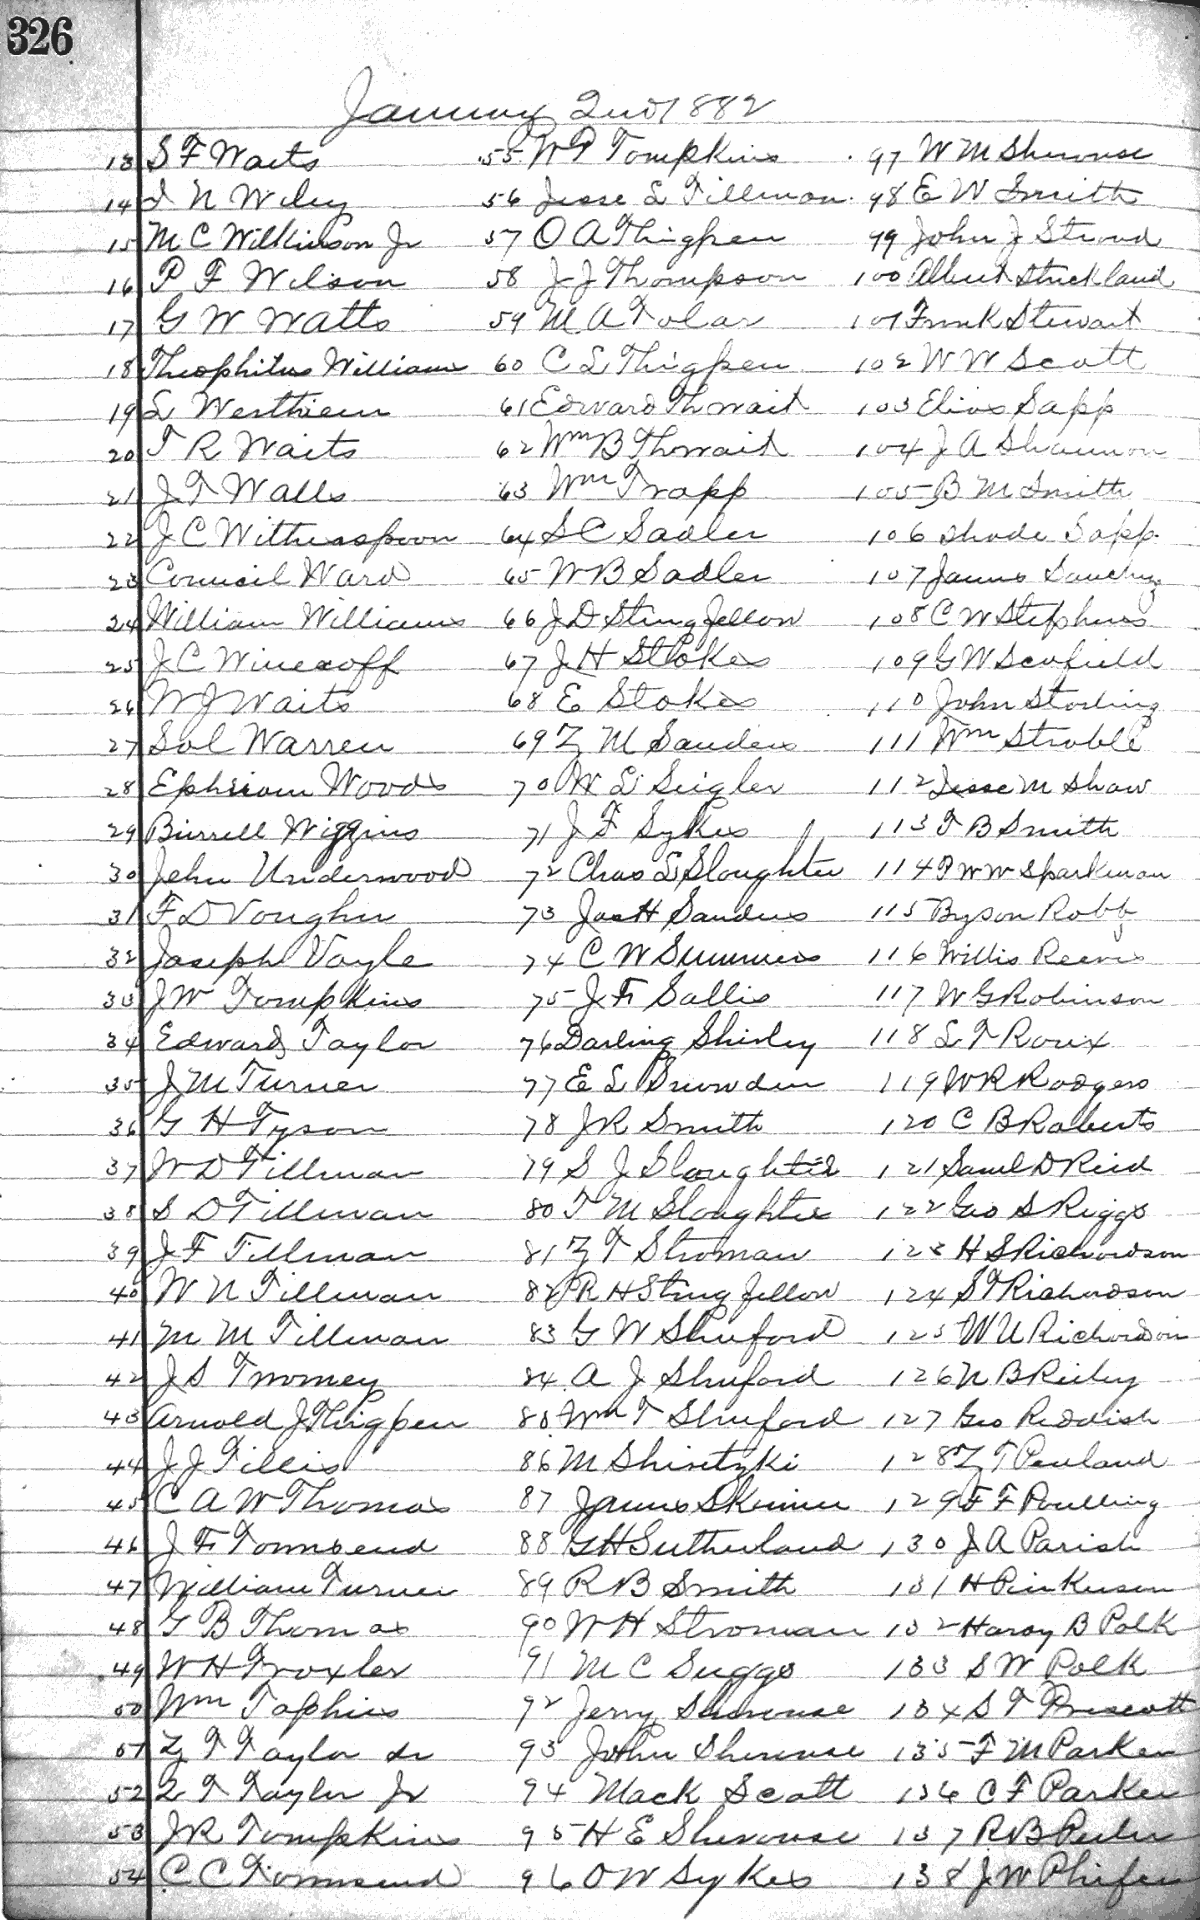 326
January 2nd 1882
13 S F Waits
14 I N Wiley
15 M C Wilkinson Jr
16 P F Wilson
17 G W Watts
18 Theophilus Williams
19 L Werthiem
20 T R Waits
21 J T Walls
22 J C Witherspoon
23 Council Ward
24 William Williams
25 J C Winecoff
26 W J Waits
27 Sol Warren
28 Ephriam Woods
29 Burrell Wiggins
30 Jehu Underwood
31 F D Voughn
32 Joseph Vogle
33 J W Tompkins
34 Edward Taylor
35 J M Turner
36 G H Tyson
37 W D Tillman
38 S D Tillman
39 J F Tillman
40 W N Tillman
41 M M Tillman
42 J S Twomey
43 Arnold J Thigpen
44 J J Tillis
45 C A W Thomas
46 J F Townsend
47 William Turner
48 G B Thomas
49 W H Troxler
50 Wm Tophins
51 Z T Taylor Sr
52 Z T Taylor Jr
53 J R Tompkins
54 C C Townsend
55 W P Tompkins
56 Jesse L Tillman
57 O A Thigpen
58 J J Thompson
59 M A Tolar
60 C L Thigpen
61 Edward Thwait
62 Wm B Thowait
63 Wm Trapp
64 S C Sadler
65 W B Sadler
66 J D Stingfellow
67 J H Stokes
68 E Stokes
69 Z M Sanders
70 W L Seigler
71 J F Sykes
72 Chas L Sloughter
73 Jas H Sanders
74 C W Summers
75 J F Sallis
76 Darling Shirley
77 E L Snowden
78 J R Smith
79 S J Sloughter
80 T M Sloughter
81 Z T Stroman
82 R H Stingfellow
83 G W Shuford
84 A J Shuford
85 Wm T Shuford
86 M Shiretzki
87 James Skinner
88 G H Sutherland
89 R B Smith
90 W H Stroman
91 M C Suggs
92 Jerry Sherouse
93 John Sherouse
94 Mack Scott
95 H E Sherouse
96 O W Sykes
97 W M Sherouse
98 E W Smith
99 John J Stroud
100 Albert Strickland
101 Frank Stewart
102 W W Scott
103 Elias Sapp
104 J A Shannon
105 B M Smith
106 Shade Sapp
107 James Sanchez
108 C W Stephens
109 G W Scofield
110 John Starling
111 Wm Stroble
112 Jesse M Shaw
113 T B Smith
114 P W W Sparkman
115 Byson Robb
116 Willis Reeves
117 W G Robinson
118 L T Roux
119 W R Rodgers
120 C B Roberts
121 Saml D Reid
122 Geo S Riggs
123 H S Richardson
124 S T Richardson
125 W U Richardson
126 N B Reiley
127 Geo Reddish
128 Z T Penland
129 F F Poulling
130 J A Parish
131 H Pinkerson
132 Haroy B Polk
133 S W Polk
134 S T Prescott
135 F M Parker
136 C F Parker
137 R B Peeler
138 J W Phifer